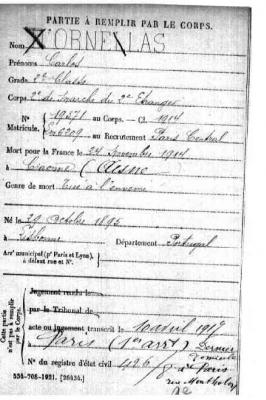 PARTIE À REMPLIR PAR LE CORPS.
Nom D'ORNELLAS
Prénoms Carlos
Grade 2e Classe
Corps 2e de Marche du 2e Etranger
N° 19571 au Corps. — Cl. 1914
Matricule. 6209 au Recrutement Paris Central
Mort pour la France le 24 Novembre 1914
à Craonne (Aisne)
Genre de mort Tué à l'ennemi
Né le 29 Octobre 1895
à Lisbonne Département Portugal
Arr' municipal (p' Paris et Lyon), à défaut rue et N°.
Cette partie n'est pas à remplir par le Corps.
Jugement rendu le
par le Tribunal de
acte ou jugement transcrit le 10 avril 1917
à Paris (1er arrt) Dernier domicile
N° du registre d'état civil 426 à Paris
rue Montholon
534-708-1921. [26434.]